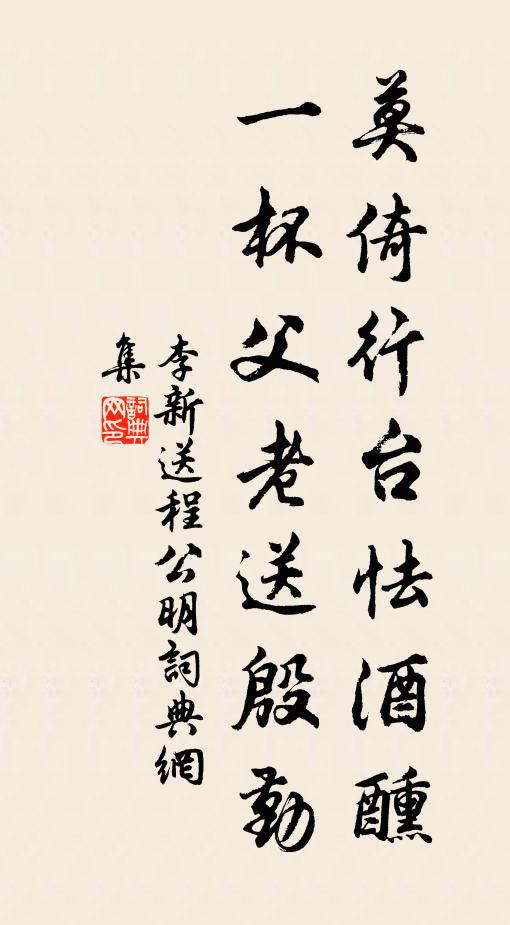 莫倚行台怯酒醺
一杯父老送殷勤
李新送程公明詞典網
集
詞典
网印